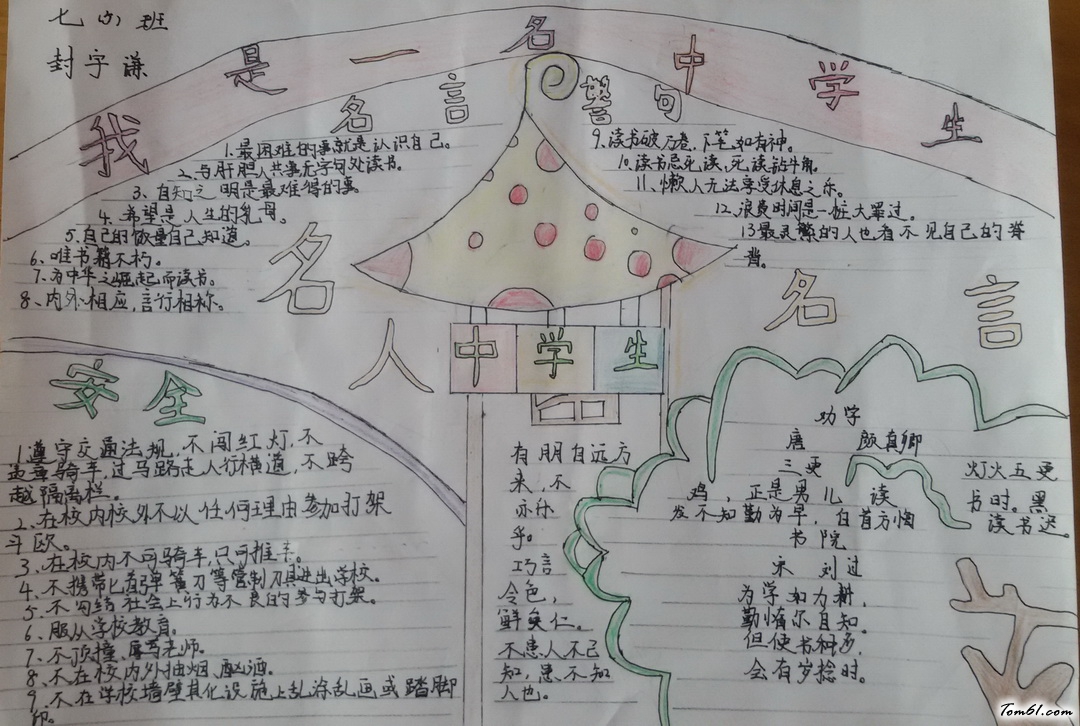 七六班
封宇谦
我是一名中学生
名言警句
1.最困难的事就是认识自己。
2、与肝胆人共事无字句处读书。
3、自知之明是最难得的事
4、希望是人生的乳母。
5、自己的饭量自己知道。
6、唯书籍不朽。
7、为中华之崛起而读书。
8、内外相应,言行相称。
9、读书破万卷,下笔如有神。
10、读书忌死读,死读钻牛角。
11、懒人无法享受休息之乐。
12、浪费时间是一桩大罪过。
13最灵繁的人也看不见自己的脊
背。
名人名言
中学生
安全
1、遵守交通法规,不闯红灯,不
骑车,过马路走人行横道,不跨
越隔离栏。
2、在校内校外不以任何理由参加打架
斗殴。
3、在校内不可骑车,只可推车。
4、不携带匕首弹簧刀等管制刀具进出学校。
5、不勾结社会上行为不良的参与打架。
6、服从学校教育。
7、不顶撞、辱骂老师。
8、不在校内外抽烟、酗酒。
9、不在学校墙壁其化设施上乱涂乱画或踏脚
印。
有朋自远方
来,不
亦
乎。
巧言
令色,
鲜矣仁。
不患人不己
知,患不知
人也。
劝学
唐 颜真卿
三更灯火五更
鸡,正是男儿读书时。黑
发不知勤为早,白首方悔读书迟。
书院
宋 刘过
为学如为耕,
勤惰尔自知。
但使书种多,
会有岁稔时。
Tom61.com